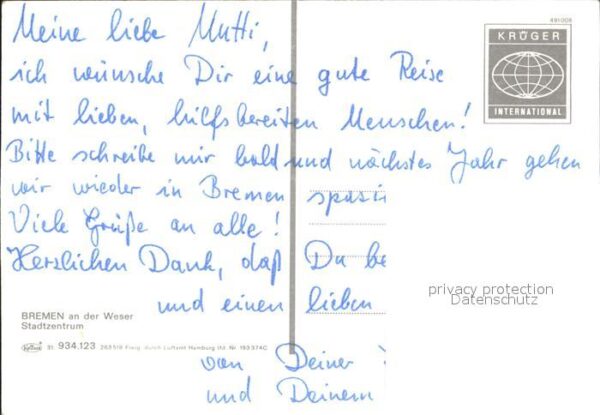 491008
KRÜGER
INTERNATIONAL
Meine liebe Mutti,
ich wünsche Dir eine gute Reise
mit lieben, hilfsbereiten Menschen!
Bitte schreibe mir bald und nächstes Jahr gehen
wir wieder in Bremen spazi
Viele Grüße an alle!
Herzlichen Dank, daß Du be
und einen lieben
von Deiner
und Deinem
privacy protection
Datenschutz
BREMEN an der Weser
Stadtzentrum
Krüger 91 934.123 263519 Freig. durch Luftamt Hamburg lfd. Nr. 193 37AC